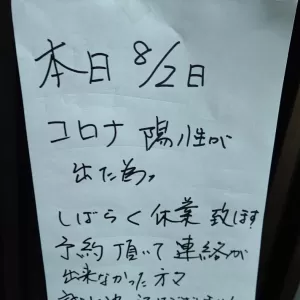 本日 8/2日
コロナ 陽性が
出た為
しばらく休業致します
予約頂いて連絡が
出来なかった方々